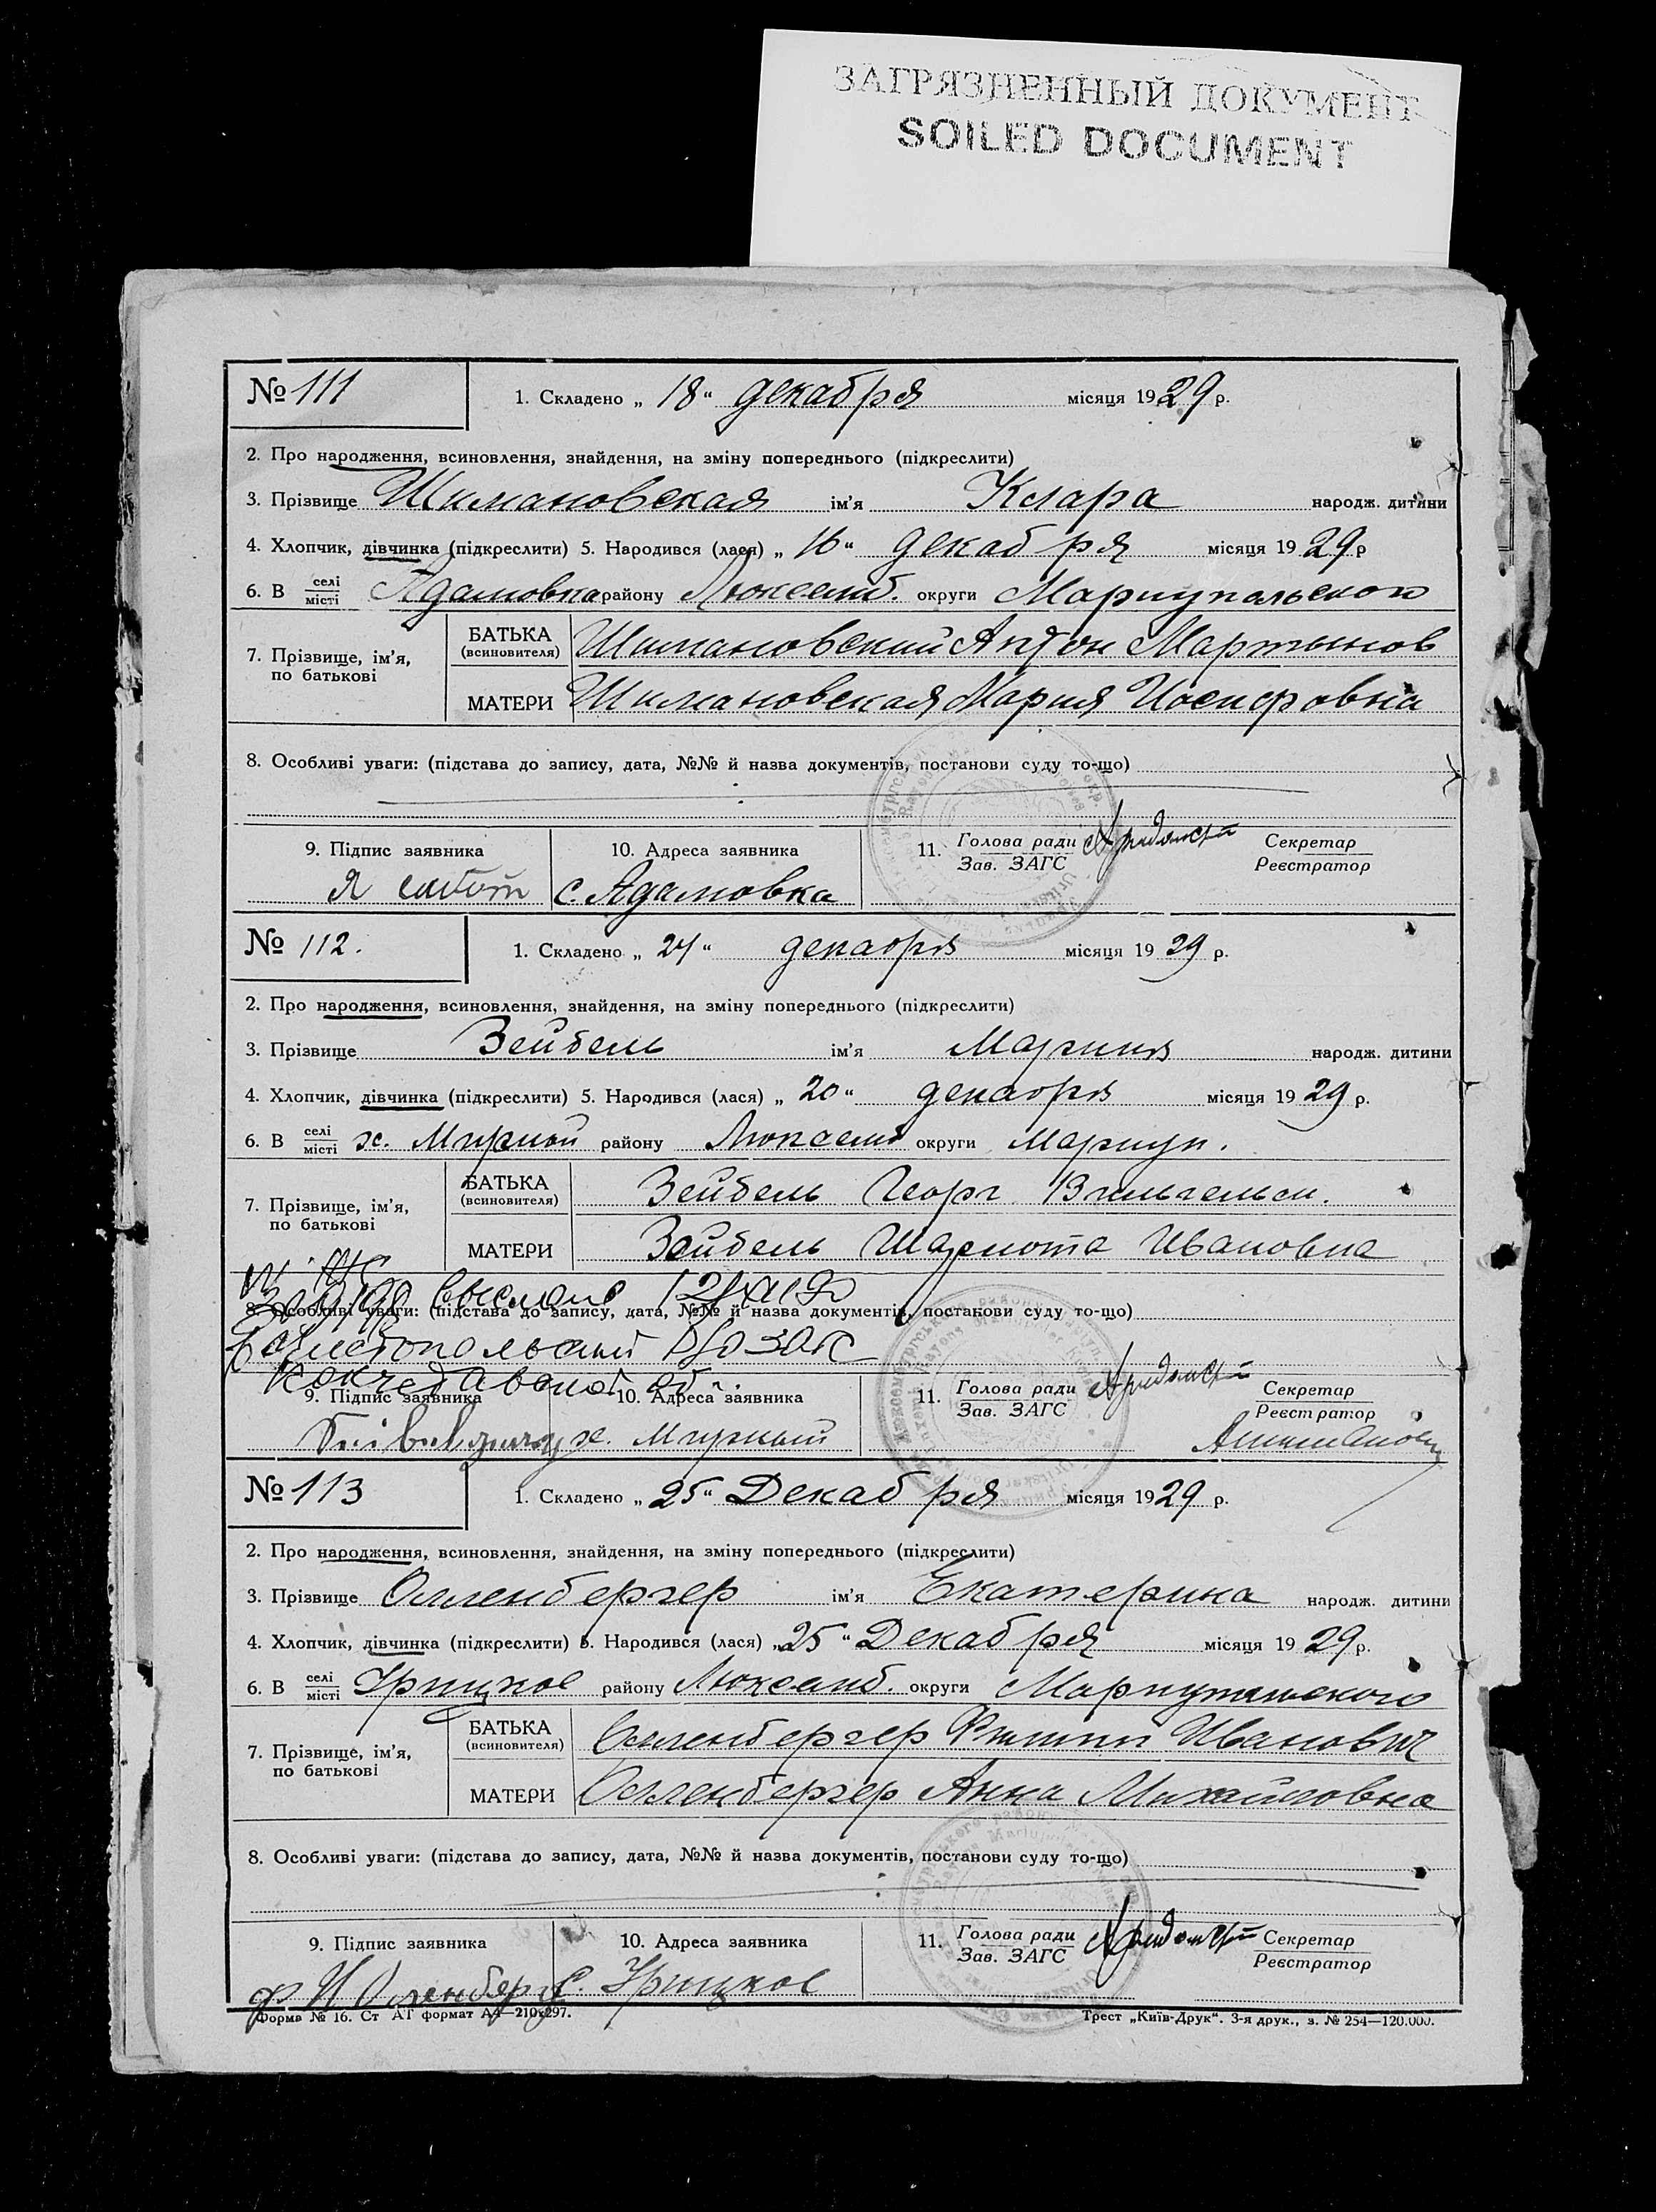 ЗАГРЯЗНЕННЫЙ ДОКУМЕНТ
SOILED DOCUMENT
№ 111
1. Складено „ 18 “ декабря місяця 1929 р.
2. Про народження, всиновлення, знайдення, на зміну попереднього (підкреслити)
3. Прізвище Шимановская ім'я Клара народж. дитини
4. Хлопчик, дівчинка (підкреслити) 5. Народився (лася) „ 16 “ декабря місяця 19 29 р
6. В селі місті Адамовка району Люксемб. округи Мариупольского
7. Прізвище, ім'я, по батькові
БАТЬКА (всиновителя) Шимановский Антон Мартынов
МАТЕРИ Шимановская Мария Иосифовна
8. Особливі уваги: (підстава до запису, дата, №№ й назва документів, постанови суду то-що)
9. Підпис заявника 10. Адреса заявника 11. Голова ради Зав. ЗАГС Секретар Реєстратор
с. Адамовка
№ 112.
1. Складено „ 24 “ декабря місяця 19 29 р.
2. Про народження, всиновлення, знайдення, на зміну попереднього (підкреслити)
3. Прізвище Зейбель ім'я Мария народж. дитини
4. Хлопчик, дівчинка (підкреслити) 5. Народився (лася) „ 20 “ декабря місяця 19 29 р.
6. В селі місті х. Мирный району Люксемб округи Мариуп.
7. Прізвище, ім'я, по батькові
БАТЬКА (всиновителя) Зейбель Георг Вильгельм.
МАТЕРИ Зейбель Шарлота Ивановна
выслано
8. Особливі уваги: (підстава до запису, дата, №№ й назва документів, постанови суду то-що)
Чистопольский Рбо ЗАГС
Кокчетавской об.
9. Підпис заявника 10. Адреса заявника 11. Голова ради Зав. ЗАГС Секретар Реєстратор
х. Мирный
№ 113
1. Складено „ 25 “ Декабря місяця 1929 р.
2. Про народження, всиновлення, знайдення, на зміну попереднього (підкреслити)
3. Прізвище Олленбергер ім'я Екатерина народж. дитини
4. Хлопчик, дівчинка (підкреслити) 5. Народився (лася) „ 25 “ Декабря місяця 19 29 р.
6. В селі місті Урицкое району Люксемб. округи Мариупольского
7. Прізвище, ім'я, по батькові
БАТЬКА (всиновителя) Олленбергер Филипп Иванович
МАТЕРИ Олленбергер Анна Михайловна
8. Особливі уваги: (підстава до запису, дата, №№ й назва документів, постанови суду то-що)
9. Підпис заявника 10. Адреса заявника 11. Голова ради Зав. ЗАГС Секретар Реєстратор
с. Урицкое
Форма № 16. Ст АТ формат А4—210х297. Трест „Київ-Друк“. 3-я друк., з. № 254—120.000.